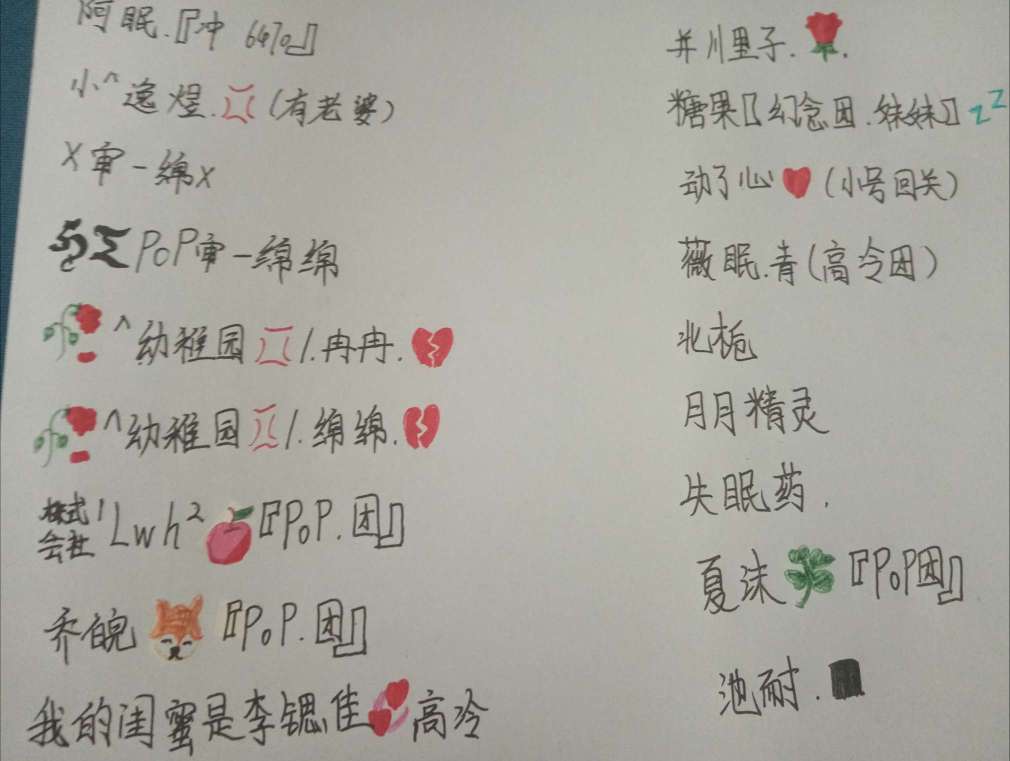 阿眠.『冲 6470』
小^逸煜.💢(有老婆)
X审-绵X
PoP审-绵绵
🥀^幼稚园💢/.冉冉.💔
🥀^幼稚园💢/.绵绵.💔
株式会社 Lwh²🍎『PoP.团』
乔皖🦊『PoP.团』
我的闺蜜是李锶佳💞高冷
并川里子.🌹.
糖果〖幻念团.妹妹〗zZ
动了心❤(小号回关)
薇眠.青(高冷团)
北栀
月月精灵
失眠药.
夏沫🍀『PoP团』
池耐.